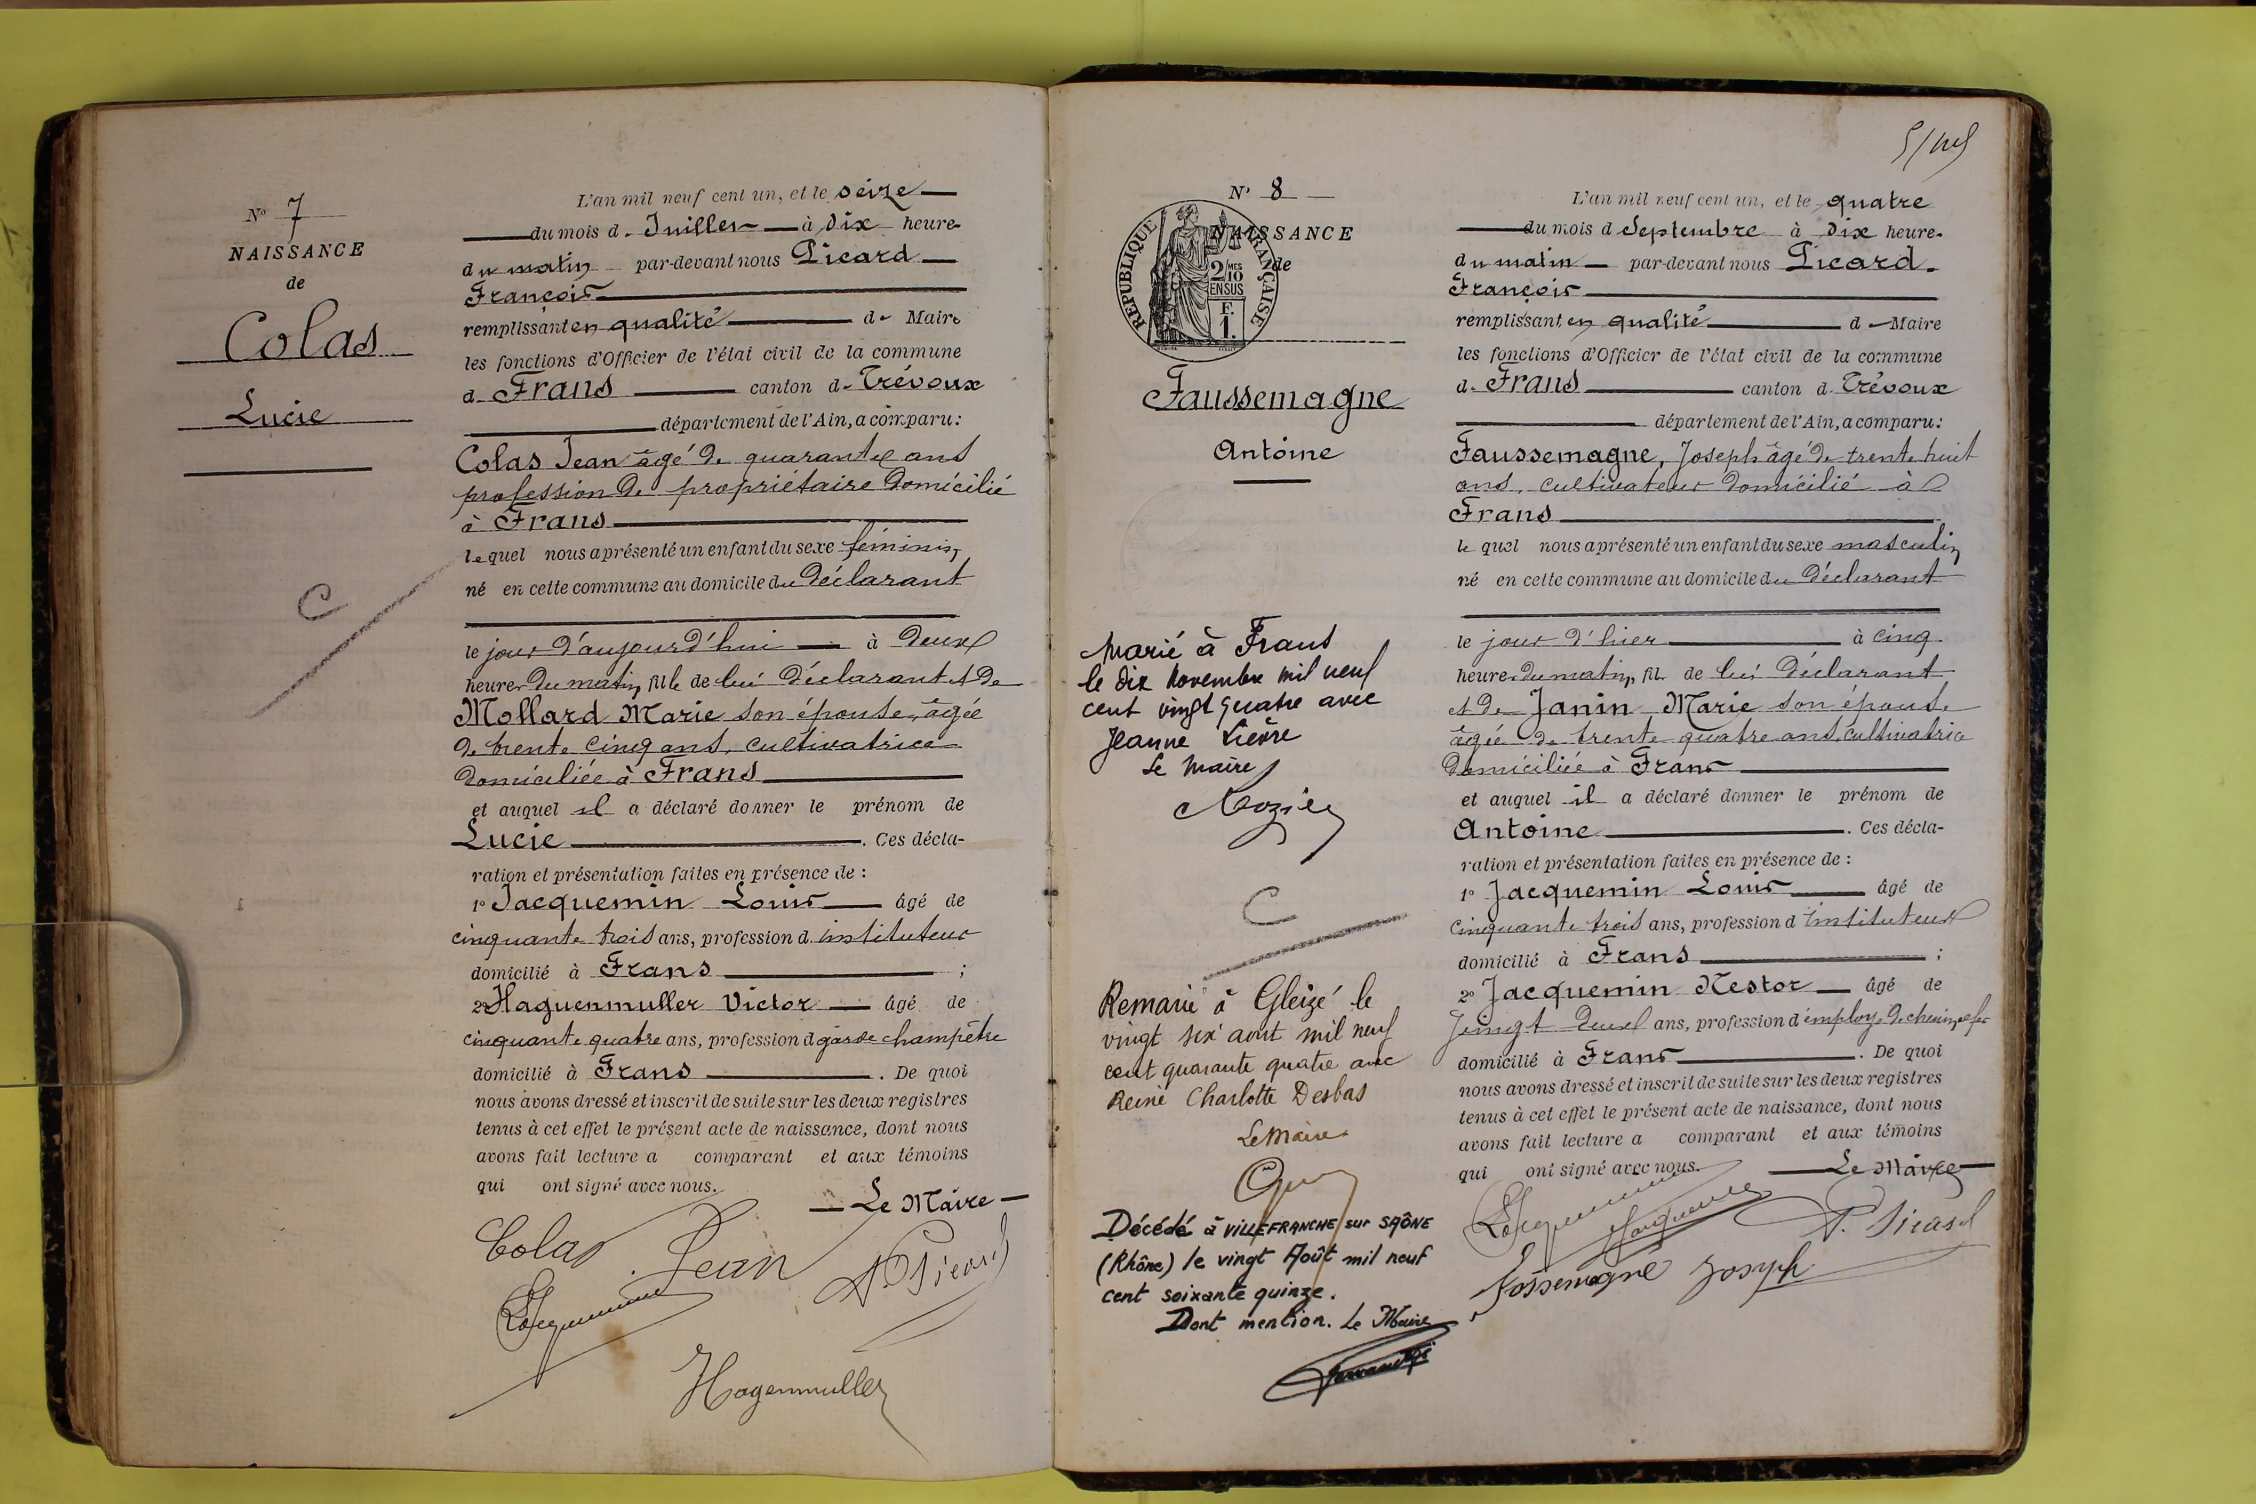 N° 7
NAISSANCE
de
Colas
Lucie
L'an mil neuf cent un, et le seize
du mois d. Juillet à Dix heure.
du matin par-devant nous Picard
François
remplissant en qualité de Maire
les fonctions d'Officier de l'état civil de la commune
d. Frans canton d. Trévoux
département de l'Ain, a comparu:
Colas Jean âgé de quarante ans
profession de propriétaire domicilié
à Frans
lequel nous a présenté un enfant du sexe féminin,
né en cette commune au domicile du Déclarant
le jour d'aujourd'hui à Deux
heures du matin, fille de lui Déclarant et de
Mollard Marie son épouse, âgée
de trente cinq ans, cultivatrice
domiciliée à Frans
et auquel il a déclaré donner le prénom de
Lucie. Ces décla-
ration et présentation faites en présence de :
1° Jacquemin Louis âgé de
cinquante trois ans, profession d. instituteur
domicilié à Frans ;
2° Haguenmuller Victor âgé de
cinquante quatre ans, profession d garde champêtre
domicilié à Frans. De quoi
nous avons dressé et inscrit de suite sur les deux registres
tenus à cet effet le présent acte de naissance, dont nous
avons fait lecture a comparant et aux témoins
qui ont signé avec nous.
Le Maire
Colas Jean
Jacquemin
Picard
Hagenmuller
C
5/
N° 8
NAISSANCE
de
RÉPUBLIQUE FRANÇAISE
2/10 MES
EN SUS
F.
1.
Faussemagne
Antoine
marié à Frans
le dix novembre mil neuf
cent vingt quatre avec
Jeanne Lièvre
Le Maire
C
Remarié à Gleizé le
vingt six août mil neuf
cent quarante quatre avec
Reine Charlotte Desbas
Le Maire
Décédé à VILLEFRANCHE sur SAÔNE
(Rhône) le vingt Août mil neuf
cent soixante quinze.
Dont mention. Le Maire
L'an mil neuf cent un, et le quatre
du mois d Septembre à Dix heure.
du matin par-devant nous Picard
François
remplissant en qualité de Maire
les fonctions d'Officier de l'état civil de la commune
d. Frans canton d. Trévoux
département de l'Ain, a comparu:
Faussemagne, Joseph âgé de trente huit
ans, cultivateur domicilié à
Frans
lequel nous a présenté un enfant du sexe masculin
né en cette commune au domicile du Déclarant
le jour d'hier à cinq
heures du matin, fils de lui Déclarant
et de Janin Marie son épouse
âgée de trente quatre ans, cultivatrice
domiciliée à Frans
et auquel il a déclaré donner le prénom de
Antoine. Ces décla-
ration et présentation faites en présence de :
1° Jacquemin Louis âgé de
cinquante trois ans, profession d instituteur
domicilié à Frans ;
2° Jacquemin Nestor âgé de
vingt deux ans, profession d'employé de chemin de fer
domicilié à Frans. De quoi
nous avons dressé et inscrit de suite sur les deux registres
tenus à cet effet le présent acte de naissance, dont nous
avons fait lecture a comparant et aux témoins
qui ont signé avec nous.
Le Maire
Jacquemin
Jacquemin
Picard
Fossemagne Joseph